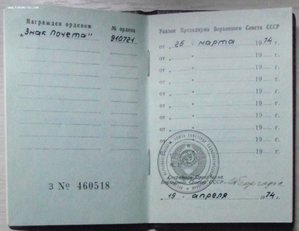 Награжден орденом
№ ордена
„Знак Почета“
910721
З № 460518
Указы Президиума Верховного Совета СССР
от „ 25 “ марта 1974 г.
от „ “ 19 г.
от „ “ 19 г.
от „ “ 19 г.
от „ “ 19 г.
от „ “ 19 г.
от „ “ 19 г.
от „ “ 19 г.
Секретарь Президиума
Верховного Совета СССР
„ 19 “ апреля 1974 г.